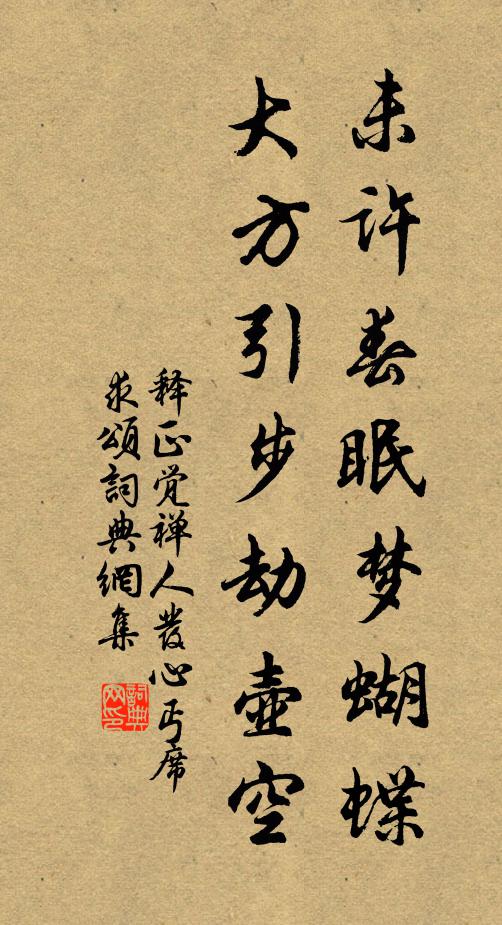 未许春眠梦蝴蝶
大方引步劫壶空
释正觉禅人发心丐席
求颂词典网集
词典网印